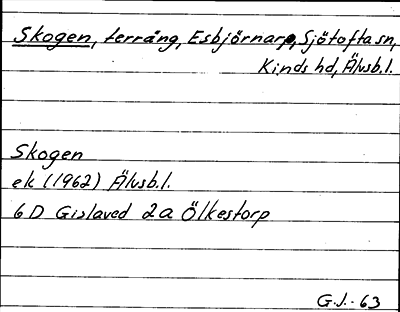 Skogen, terräng, Esbjörnarp, Sjötofta sn,
Kinds hd, Älvsb.l.
Skogen
ek (1962) Älvsb.l.
6 D Gislaved 2a Ölkestorp
G.J.-63